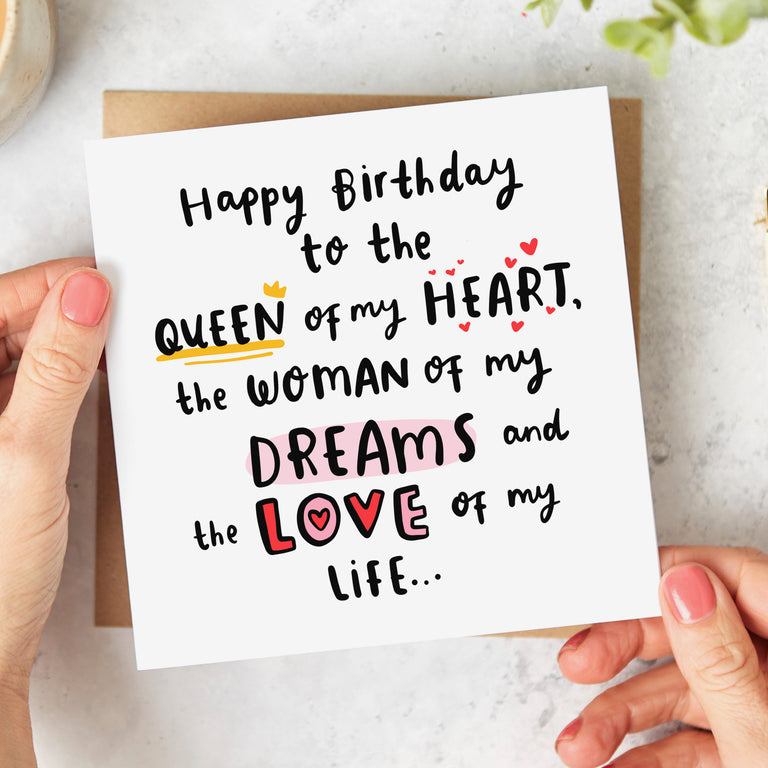 Happy Birthday
to the
QUEEN of my HEART,
the WOMAN of my
DREAMS and
the LOVE of my
LiFE...